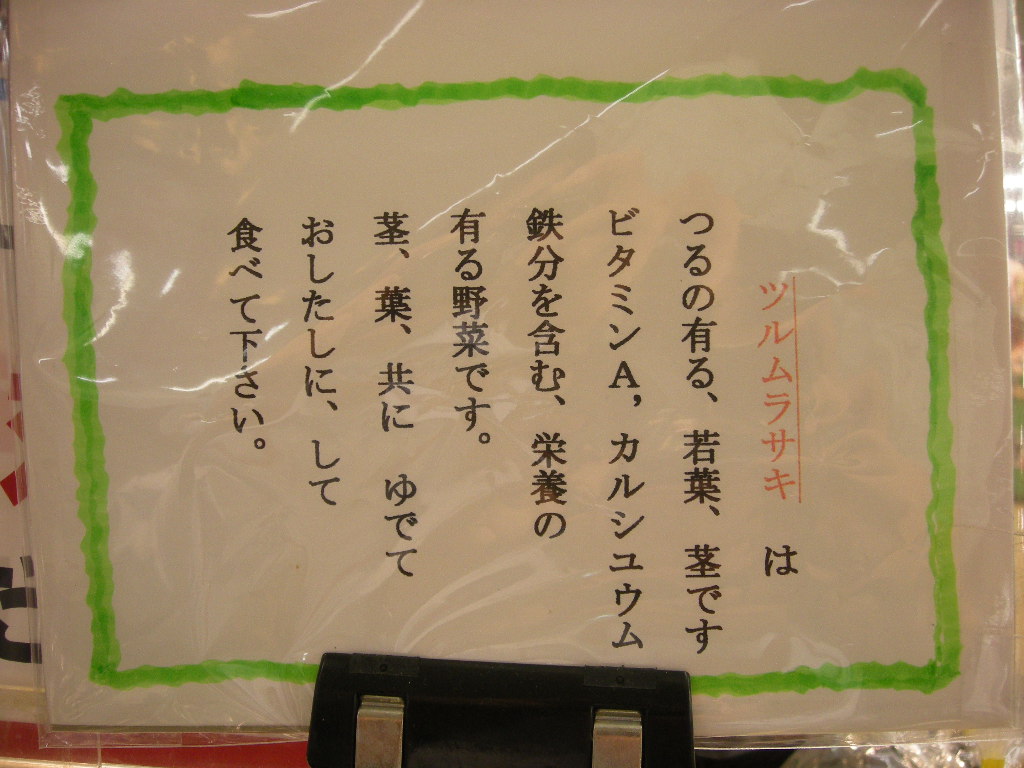 ツルムラサキ は
つるの有る、若葉、茎です
ビタミンA，カルシユウム
鉄分を含む、栄養の
有る野菜です。
茎、葉、共に ゆでて
おしたしに、して
食べて下さい。